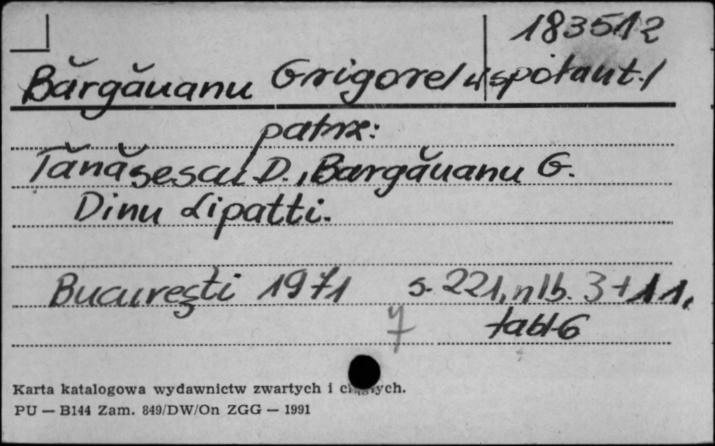 183512
Bărgăuanu Grigore /współaut./
patrz:
Tănăsescu D., Bargăuanu G.
Dinu Lipatti.
Bucureşti 1971 s. 221, nlb. 3 + 11,
tabl 6
Karta katalogowa wydawnictw zwartych i ciągłych.
PU — B144 Zam. 849/DW/On ZGG — 1991